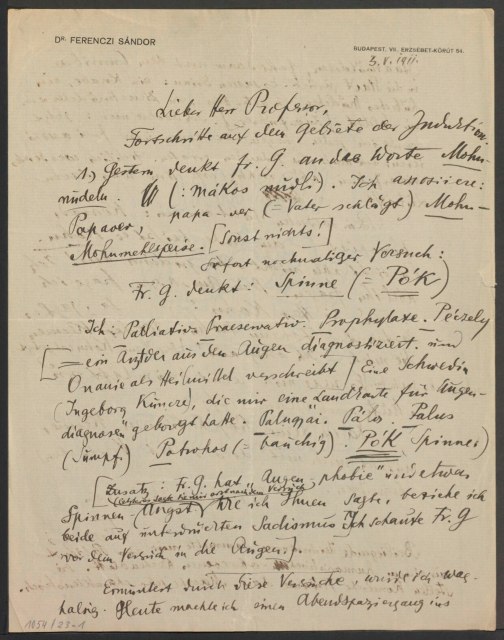 Dr. FERENCZI SÁNDOR
BUDAPEST, VII. ERZSÉBET-KÖRÚT 54.
3. V. 1911.
Lieber Herr Professor,
Fortschritte auf dem Gebiete der Induktion.
1.) Gestern denkt Fr. G. an das Worte Mohn-
nudeln. (: mákos nudli). Ich assoziiere:
papa-ver (= Vater schlägt) Mohn-
Papaver,
Mohnmehlspeise. [Sonst nichts!]
Sofort nochmaliger Versuch:
Fr. G. denkt: Spinne (= Pók)
Ich: Palliativ. Praeservativ. Prophylaxe. Péczely
[= ein Arzt der aus den Augen diagnostiziert und
Onanie als Heilmittel verschreibt] Eine Schwedin
(Ingeborg), die nur eine Landkarte für „Augen-
diagnosen" geborgt hatte. Palugyai. Pálos. Palus
(Sumpf.) Potrohos (= bauchig). Pók Spinne)
[Zusatz: Fr. G. hat „Augenphobie" und etwas
Spinnen (Angst) Wie ich Ihnen sagte, beziehe ich
beide auf Sadismus Ich schaute Fr. G
vor dem Versuch in die Augen.]
Ermuntert durch diese Versuche, wurde ich wag-
halsig. Heute machte ich einen Abendspaziergang ins
1054/23-1